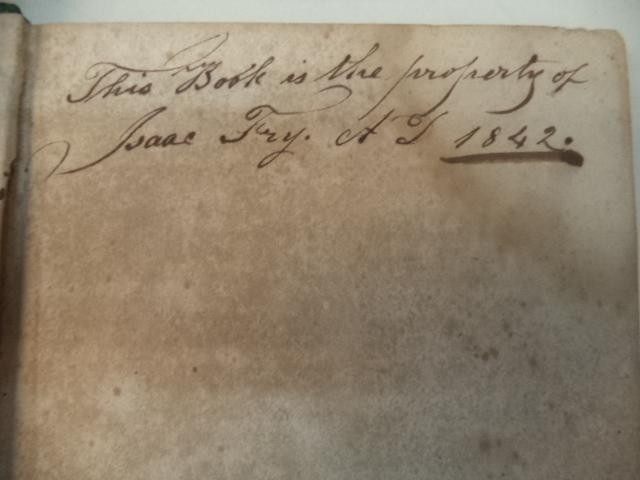 This Book is the property of
Isaac Fry. A D 1842.